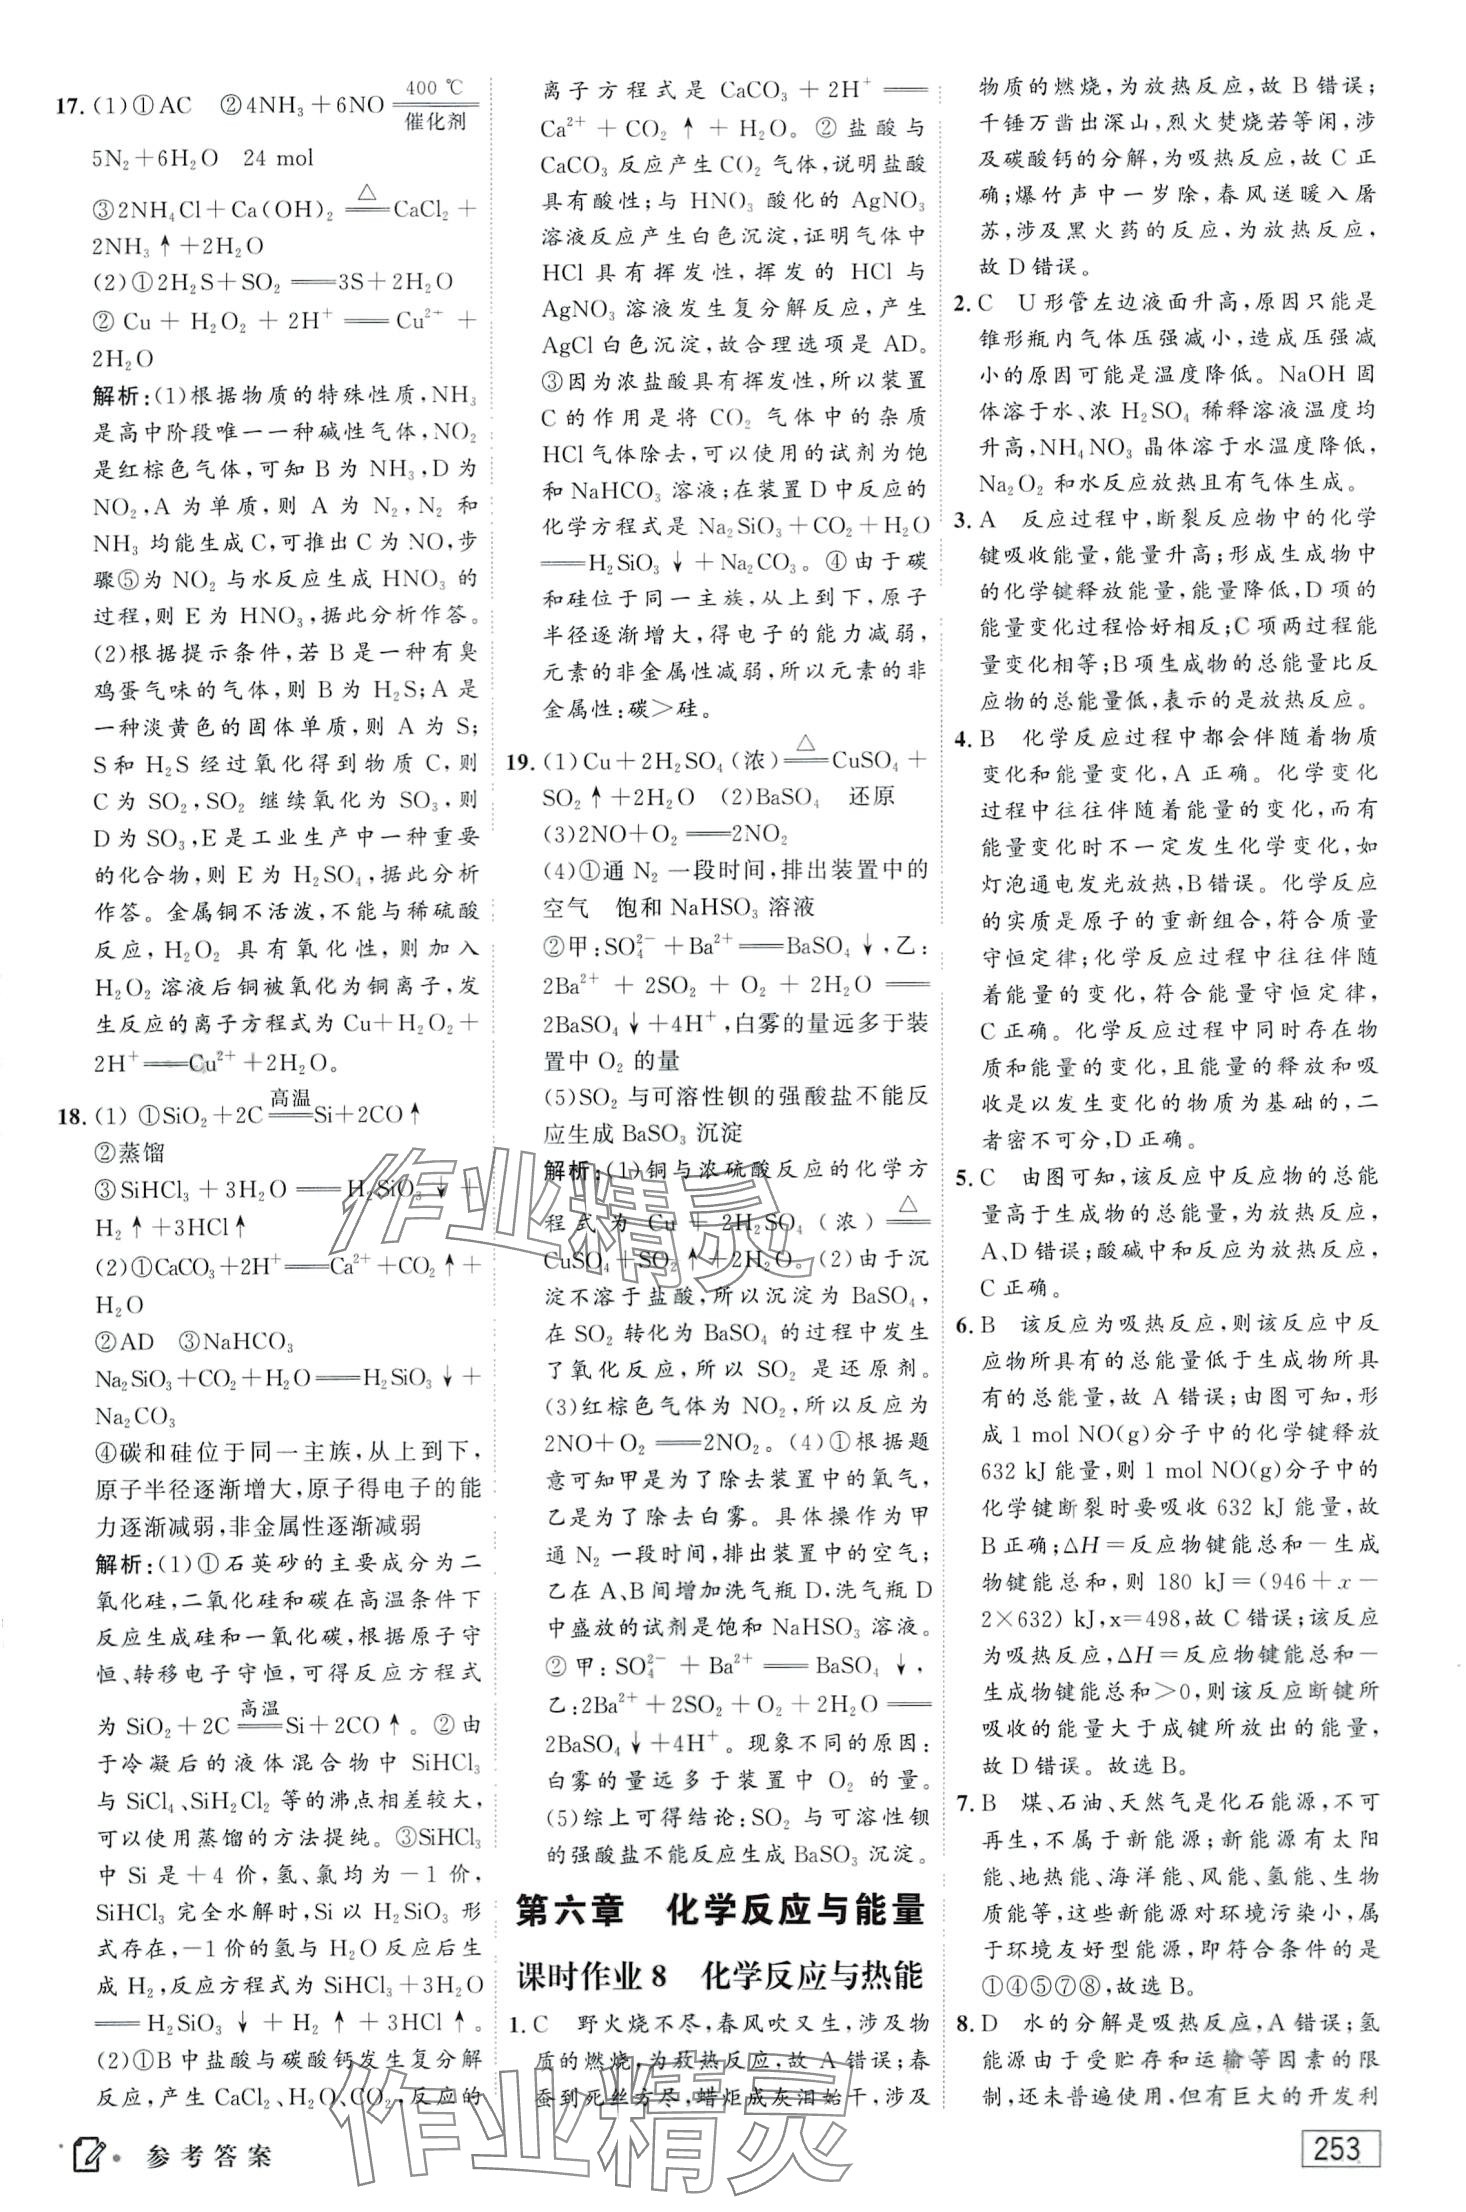 17. (1)①AC ②4NH₃+6NO ══(400 ℃/催化剂)
5N₂+6H₂O 24 mol
③2NH₄Cl+Ca(OH)₂ ══(△) CaCl₂+
2NH₃↑+2H₂O
(2)①2H₂S+SO₂══3S+2H₂O
②Cu+H₂O₂+2H⁺══Cu²⁺+
2H₂O
解析:(1)根据物质的特殊性质,NH₃
是高中阶段唯一一种碱性气体,NO₂
是红棕色气体,可知 B 为 NH₃,D 为
NO₂,A 为单质,则 A 为 N₂,N₂ 和
NH₃ 均能生成 C,可推出 C 为 NO,步
骤⑤为 NO₂ 与水反应生成 HNO₃ 的
过程,则 E 为 HNO₃,据此分析作答。
(2)根据提示条件,若 B 是一种有臭
鸡蛋气味的气体,则 B 为 H₂S;A 是
一种淡黄色的固体单质,则 A 为 S;
S 和 H₂S 经过氧化得到物质 C,则
C 为 SO₂,SO₂ 继续氧化为 SO₃,则
D 为 SO₃,E 是工业生产中一种重要
的化合物,则 E 为 H₂SO₄,据此分析
作答。金属铜不活泼,不能与稀硫酸
反应,H₂O₂ 具有氧化性,则加入
H₂O₂ 溶液后铜被氧化为铜离子,发
生反应的离子方程式为 Cu+H₂O₂+
2H⁺══Cu²⁺+2H₂O。
18. (1) ①SiO₂+2C ══(高温) Si+2CO↑
②蒸馏
③SiHCl₃+3H₂O══H₂SiO₃↓+
H₂↑+3HCl↑
(2)①CaCO₃+2H⁺══Ca²⁺+CO₂↑+
H₂O
②AD ③NaHCO₃
Na₂SiO₃+CO₂+H₂O══H₂SiO₃↓+
Na₂CO₃
④碳和硅位于同一主族,从上到下,
原子半径逐渐增大,原子得电子的能
力逐渐减弱,非金属性逐渐减弱
解析:(1)①石英砂的主要成分为二
氧化硅,二氧化硅和碳在高温条件下
反应生成硅和一氧化碳,根据原子守
恒、转移电子守恒,可得反应方程式
为 SiO₂+2C ══(高温) Si+2CO↑。②由
于冷凝后的液体混合物中 SiHCl₃
与 SiCl₄、SiH₂Cl₂ 等的沸点相差较大,
可以使用蒸馏的方法提纯。③SiHCl₃
中 Si 是+4 价,氢、氯均为-1 价,
SiHCl₃ 完全水解时,Si 以 H₂SiO₃ 形
式存在,-1 价的氢与 H₂O 反应后生
成 H₂,反应方程式为 SiHCl₃+3H₂O
══H₂SiO₃↓+H₂↑+3HCl↑。
(2)①B 中盐酸与碳酸钙发生复分解
反应,产生 CaCl₂、H₂O、CO₂,反应的
离子方程式是 CaCO₃+2H⁺══
Ca²⁺+CO₂↑+H₂O。②盐酸与
CaCO₃ 反应产生 CO₂ 气体,说明盐酸
具有酸性;与 HNO₃ 酸化的 AgNO₃
溶液反应产生白色沉淀,证明气体中
HCl 具有挥发性,挥发的 HCl 与
AgNO₃ 溶液发生复分解反应,产生
AgCl 白色沉淀,故合理选项是 AD。
③因为浓盐酸具有挥发性,所以装置
C 的作用是将 CO₂ 气体中的杂质
HCl 气体除去,可以使用的试剂为饱
和 NaHCO₃ 溶液;在装置 D 中反应的
化学方程式是 Na₂SiO₃+CO₂+H₂O
══H₂SiO₃↓+Na₂CO₃。④由于碳
和硅位于同一主族,从上到下,原子
半径逐渐增大,得电子的能力减弱,
元素的非金属性减弱,所以元素的非
金属性:碳>硅。
19. (1)Cu+2H₂SO₄(浓) ══(△) CuSO₄+
SO₂↑+2H₂O (2)BaSO₄ 还原
(3)2NO+O₂══2NO₂
(4)①通 N₂ 一段时间,排出装置中的
空气 饱和 NaHSO₃ 溶液
②甲:SO₄²⁻+Ba²⁺══BaSO₄↓,乙:
2Ba²⁺+2SO₂+O₂+2H₂O══
2BaSO₄↓+4H⁺,白雾的量远多于装
置中 O₂ 的量
(5)SO₂ 与可溶性钡的强酸盐不能反
应生成 BaSO₃ 沉淀
解析:(1)铜与浓硫酸反应的化学方
程式为 Cu+2H₂SO₄(浓) ══(△)
CuSO₄+SO₂↑+2H₂O。(2)由于沉
淀不溶于盐酸,所以沉淀为 BaSO₄,
在 SO₂ 转化为 BaSO₄ 的过程中发生
了氧化反应,所以 SO₂ 是还原剂。
(3)红棕色气体为 NO₂,所以反应为
2NO+O₂══2NO₂。(4)①根据题
意可知甲是为了除去装置中的氧气,
乙是为了除去白雾。具体操作为甲
通 N₂ 一段时间,排出装置中的空气;
乙在 A、B 间增加洗气瓶 D,洗气瓶 D
中盛放的试剂是饱和 NaHSO₃ 溶液。
②甲:SO₄²⁻+Ba²⁺══BaSO₄↓,
乙:2Ba²⁺+2SO₂+O₂+2H₂O══
2BaSO₄↓+4H⁺。现象不同的原因:
白雾的量远多于装置中 O₂ 的量。
(5)综上可得结论:SO₂ 与可溶性钡
的强酸盐不能反应生成 BaSO₃ 沉淀。
第六章 化学反应与能量
课时作业 8 化学反应与热能
1. C 野火烧不尽,春风吹又生,涉及物
质的燃烧,为放热反应,故 A 错误;春
蚕到死丝方尽,蜡炬成灰泪始干,涉及
物质的燃烧,为放热反应,故 B 错误;
千锤万凿出深山,烈火焚烧若等闲,涉
及碳酸钙的分解,为吸热反应,故 C 正
确;爆竹声中一岁除,春风送暖入屠
苏,涉及黑火药的反应,为放热反应,
故 D 错误。
2. C U 形管左边液面升高,原因只能是
锥形瓶内气体压强减小,造成压强减
小的原因可能是温度降低。NaOH 固
体溶于水、浓 H₂SO₄ 稀释溶液温度均
升高,NH₄NO₃ 晶体溶于水温度降低,
Na₂O₂ 和水反应放热且有气体生成。
3. A 反应过程中,断裂反应物中的化学
键吸收能量,能量升高;形成生成物中
的化学键释放能量,能量降低,D 项的
能量变化过程恰好相反;C 项两过程能
量变化相等;B 项生成物的总能量比反
应物的总能量低,表示的是放热反应。
4. B 化学反应过程中都会伴随着物质
变化和能量变化,A 正确。化学变化
过程中往往伴随着能量的变化,而有
能量变化时不一定发生化学变化,如
灯泡通电发光放热,B 错误。化学反应
的实质是原子的重新组合,符合质量
守恒定律;化学反应过程中往往伴随
着能量的变化,符合能量守恒定律,
C 正确。化学反应过程中同时存在物
质和能量的变化,且能量的释放和吸
收是以发生变化的物质为基础的,二
者密不可分,D 正确。
5. C 由图可知,该反应中反应物的总能
量高于生成物的总能量,为放热反应,
A、D 错误;酸碱中和反应为放热反应,
C 正确。
6. B 该反应为吸热反应,则该反应中反
应物所具有的总能量低于生成物所具
有的总能量,故 A 错误;由图可知,形
成 1 mol NO(g)分子中的化学键释放
632 kJ 能量,则 1 mol NO(g)分子中的
化学键断裂时要吸收 632 kJ 能量,故
B 正确;ΔH=反应物键能总和-生成
物键能总和,则 180 kJ=(946+x-
2×632) kJ,x=498,故 C 错误;该反应
为吸热反应,ΔH=反应物键能总和-
生成物键能总和>0,则该反应断键所
吸收的能量大于成键所放出的能量,
故 D 错误。故选 B。
7. B 煤、石油、天然气是化石能源,不可
再生,不属于新能源;新能源有太阳
能、地热能、海洋能、风能、氢能、生物
质能等,这些新能源对环境污染小,属
于环境友好型能源,即符合条件的是
①④⑤⑦⑧,故选 B。
8. D 水的分解是吸热反应,A 错误;氢
能源由于受贮存和运输等因素的限
制,还未普遍使用,但有巨大的开发利
作业精灵
作业精灵
参考答案
253